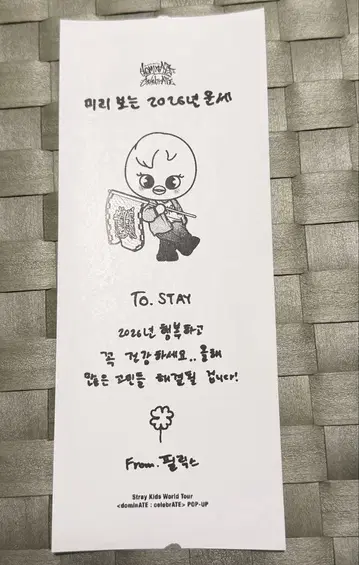 dominATE
celebrATE
미리 보는 2026년 운세
To. STAY
2026년 행복하고
꼭 건강하세요.. 올해
많은 고민들 해결될 겁니다!
From. 필릭스
Stray Kids World Tour
<dominATE : celebrATE> POP-UP